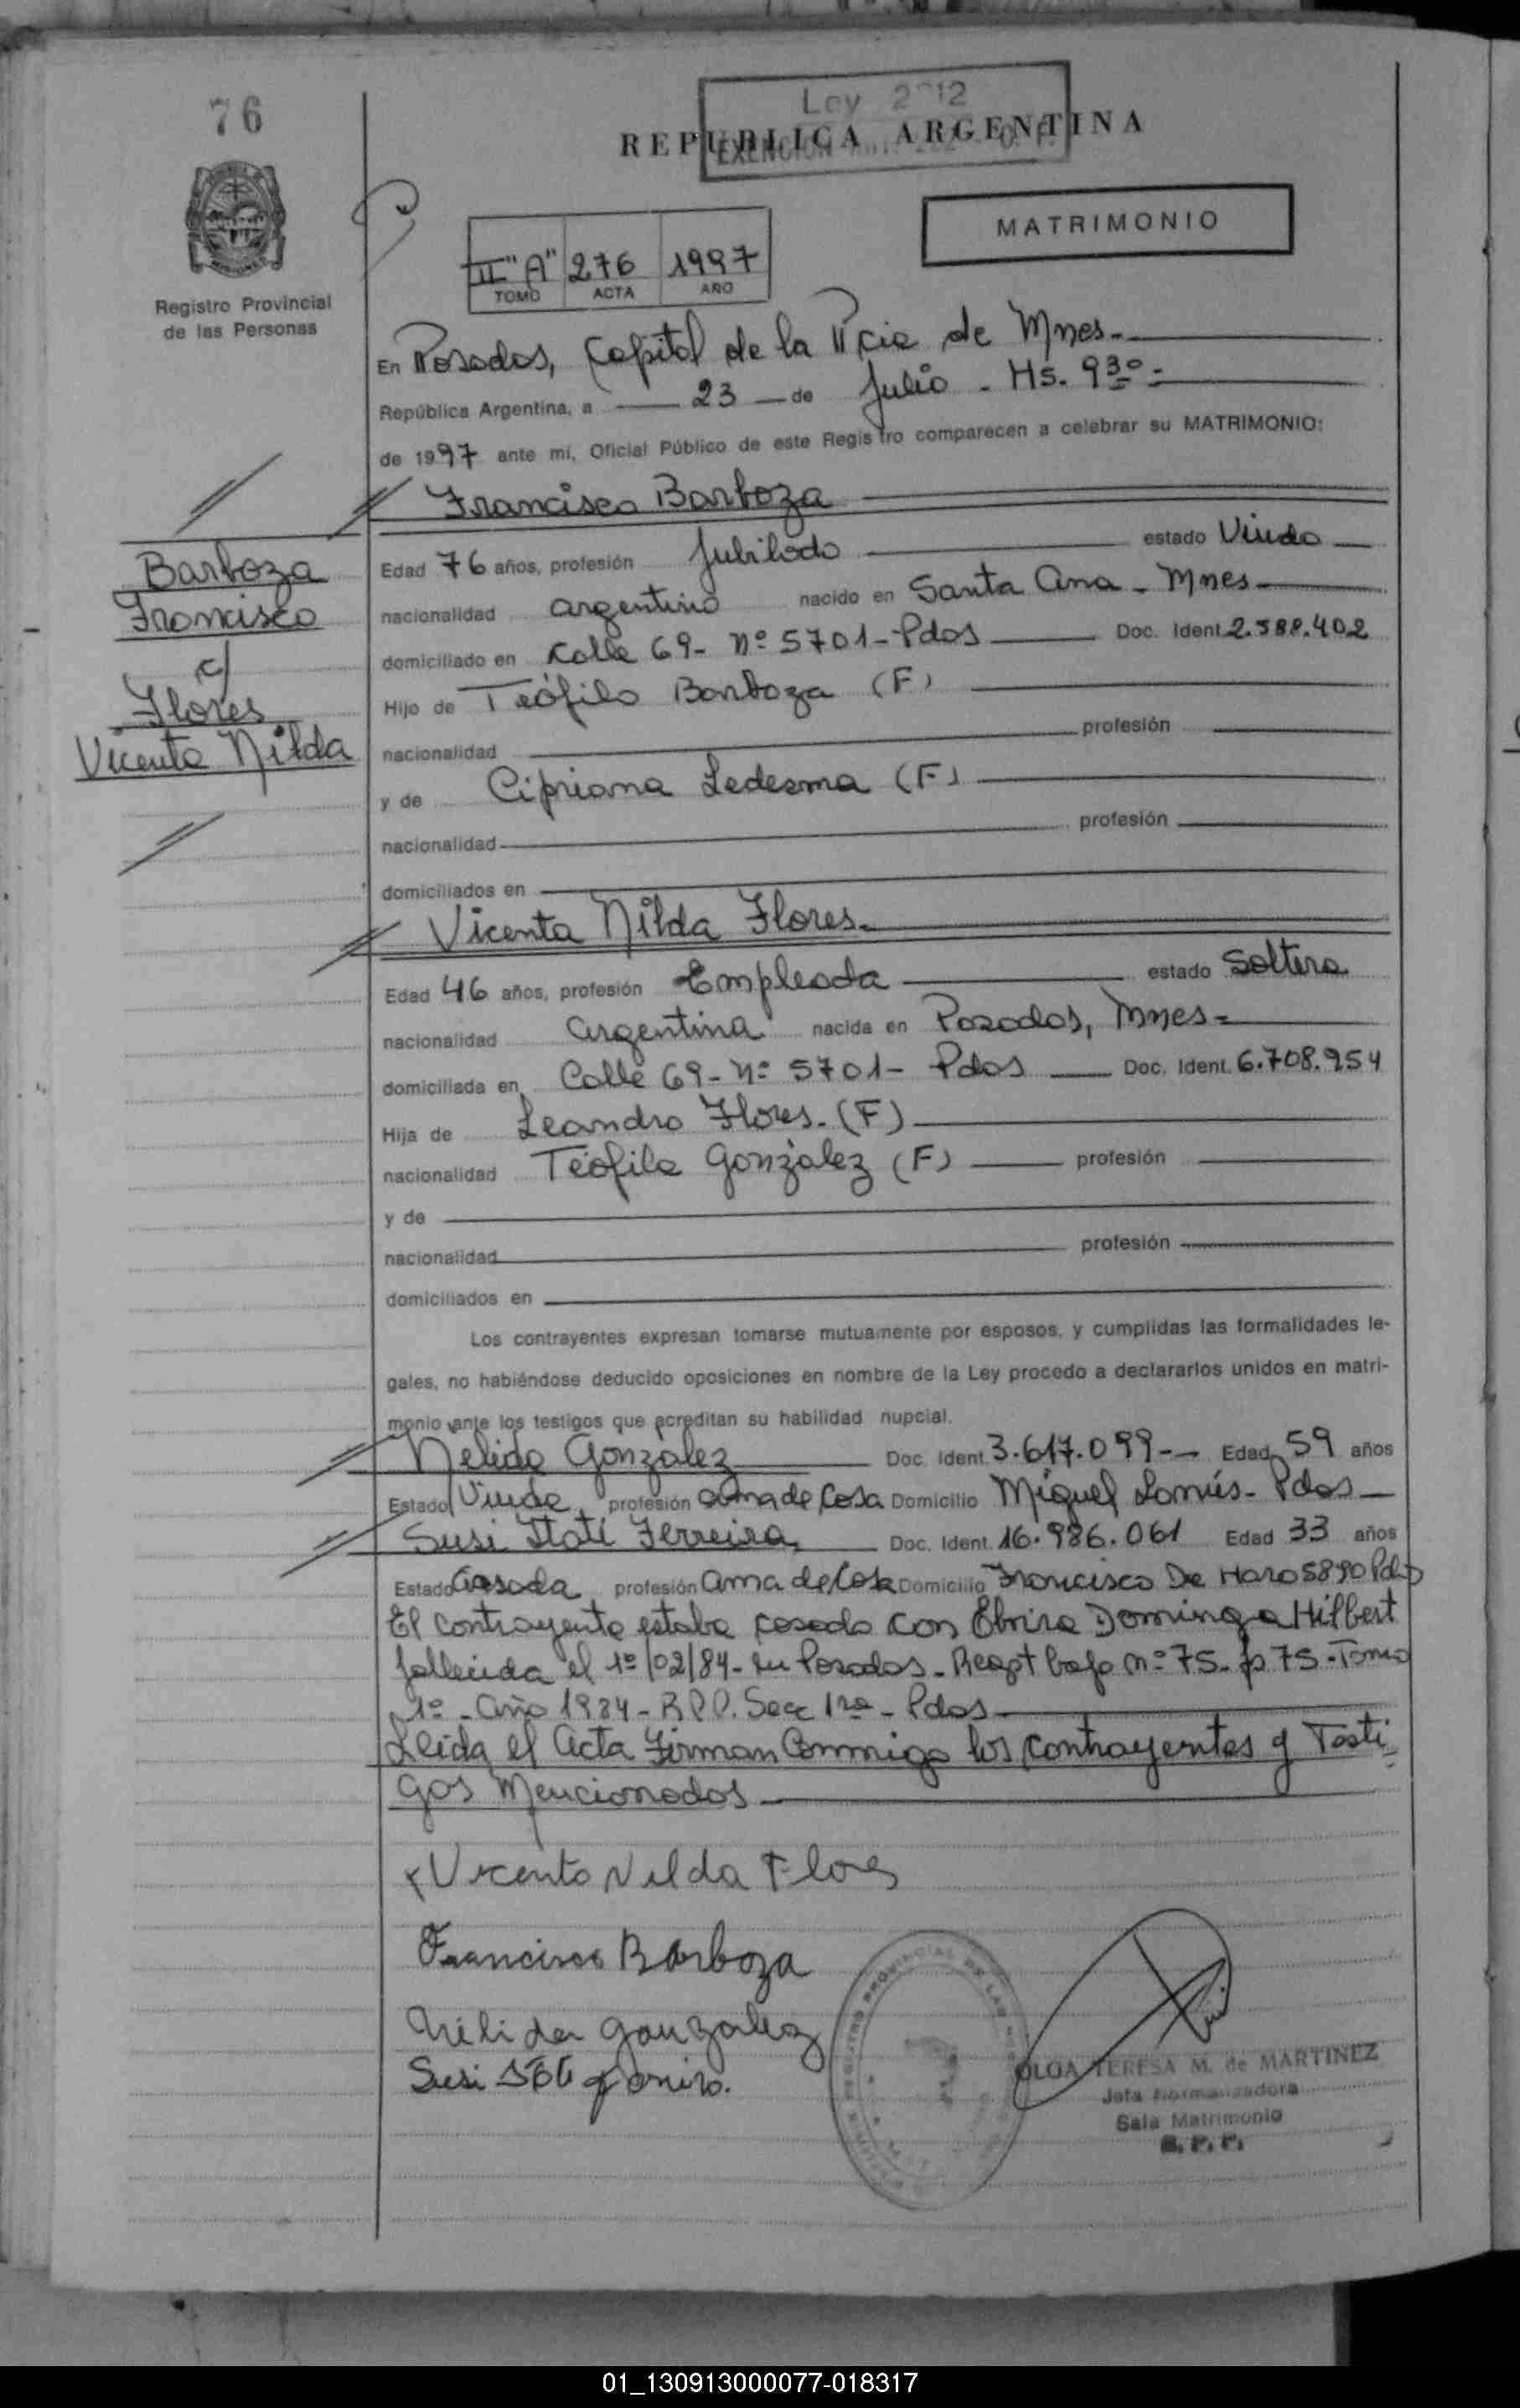 76
Ley 2212
REPUBLICA ARGENTINA
EXENCION
MATRIMONIO
II "A" 276 1997
TOMO ACTA AÑO
Registro Provincial
de las Personas
En Posadas, Capital de la Pcia de Mnes.
República Argentina, a 23 de Julio - Hs. 9 30 -
de 1997 ante mi, Oficial Público de este Registro comparecen a celebrar su MATRIMONIO:
Francisco Barboza
Barboza
Francisco
c/
Flores
Vicenta Nilda
Edad 76 años, profesión Jubilado estado Viudo
nacionalidad argentino nacido en Santa Ana - Mnes
domiciliado en Calle 69 - Nº 5701 - Pdas Doc. Ident. 2.588.402
Hijo de Teófilo Barboza (F)
nacionalidad profesión
y de Cipriana Ledesma (F)
nacionalidad profesión
domiciliados en
Vicenta Nilda Flores
Edad 46 años, profesión Empleada estado Soltera
nacionalidad argentina nacida en Posadas, Mnes
domiciliada en Calle 69 - Nº 5701 - Pdas Doc. Ident. 6.708.954
Hija de Leandro Flores. (F)
nacionalidad Teófila González (F) profesión
y de
nacionalidad profesión
domiciliados en
Los contrayentes expresan tomarse mutuamente por esposos, y cumplidas las formalidades le-
gales, no habiéndose deducido oposiciones en nombre de la Ley procedo a declararlos unidos en matri-
monio ante los testigos que acreditan su habilidad nupcial.
Nelida Gonzalez Doc. Ident. 3.617.099 Edad 59 años
Estado Viuda profesión ama de Casa Domicilio Miguel Lanús - Pdas
Susi Itatí Ferreira Doc. Ident. 16.986.061 Edad 33 años
Estado Casada profesión ama de Casa Domicilio Francisco De Haro 5890 Pdas
El contrayente estaba casado con Elvira Dominga Hilbert
fallecida el 1º/02/84 - en Posadas - bajo nº 75 - fº 75 - Tomo
1º - Año 1984 - R.P.P. Secc 1ra - Pdas
Leida el Acta Firman Conmigo los contrayentes y Testi
gos Mencionados
x Vicenta Nilda Flores
Francisco Barboza
Nélida gonzalez
Susi
REGISTRO PROVINCIAL DE LAS
OLGA TERESA M. de MARTINEZ
Jefa Normalizadora
Sala Matrimonio
R. P. P.
01_130913000077-018317